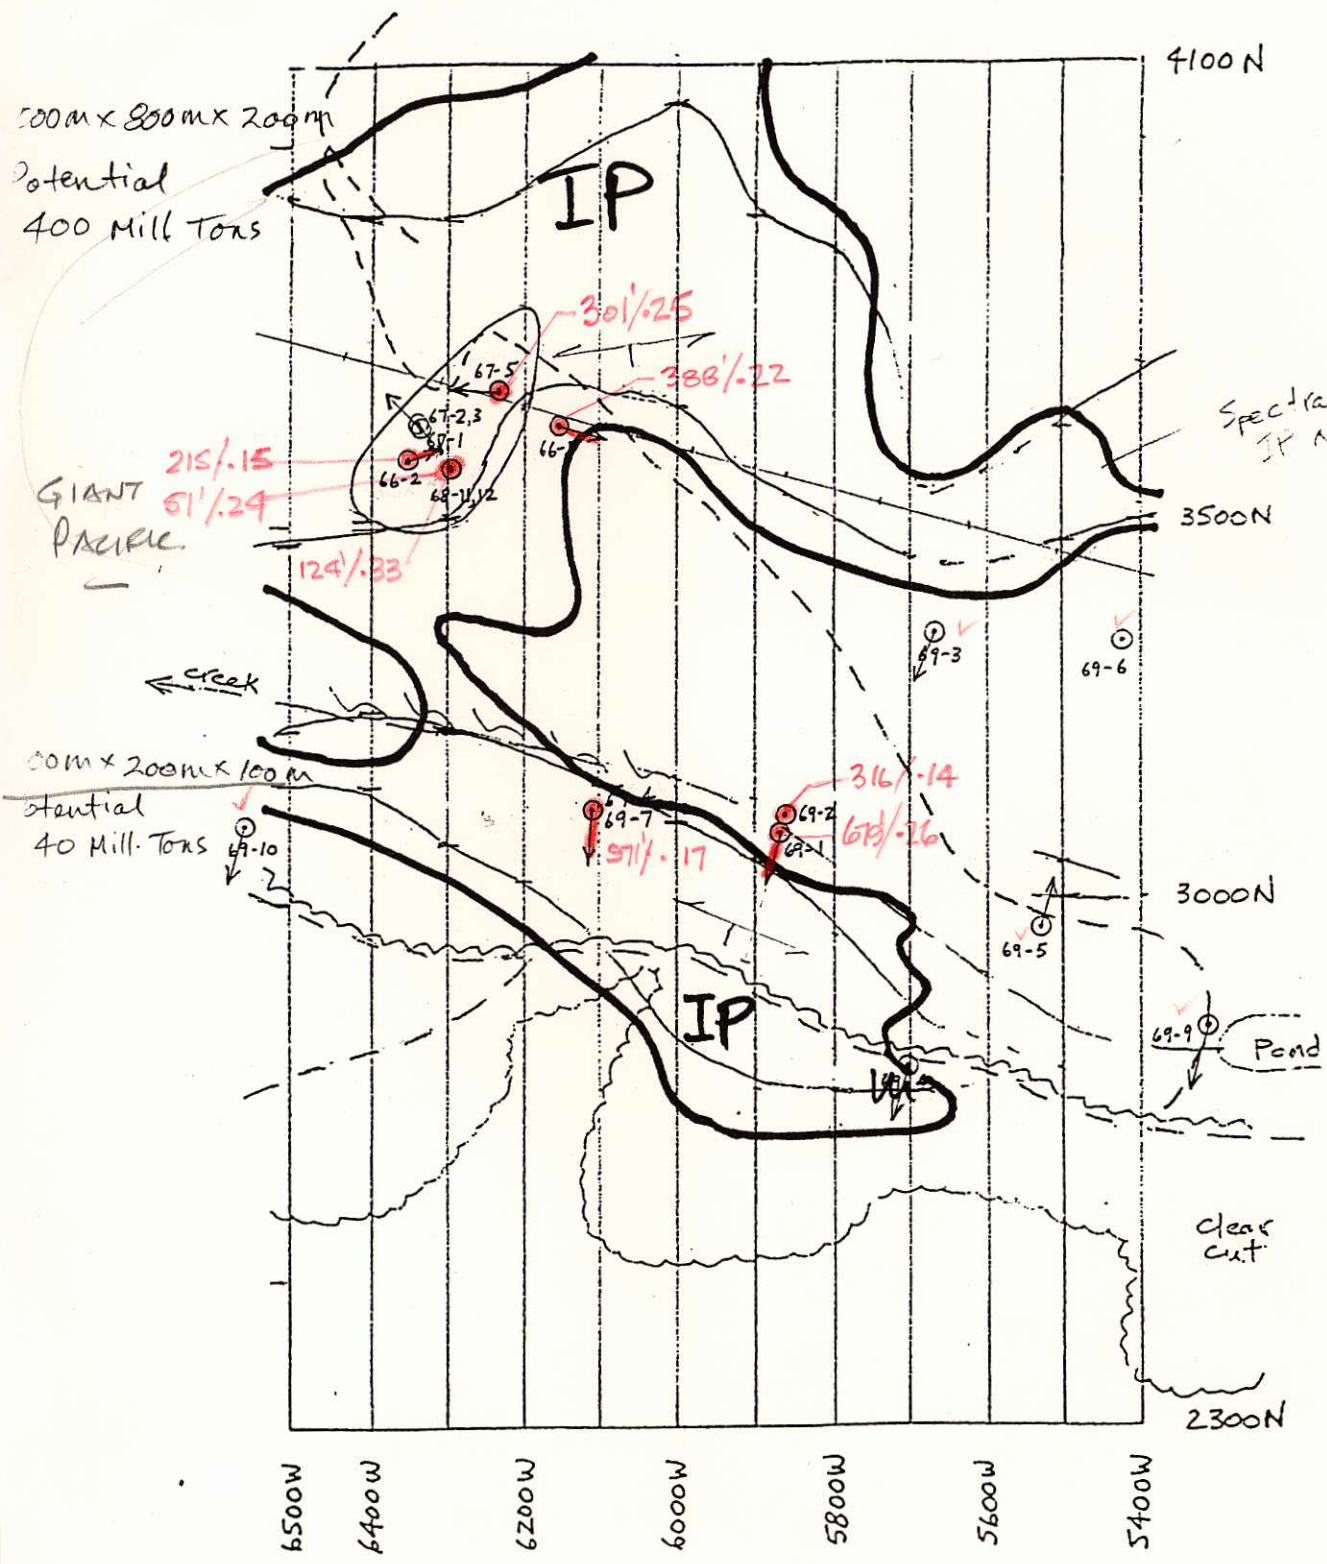 4100N
00m x 800m x 200m
Potential
400 Mill Tons
IP
301'/.25
67-5
388'/.22
67-2,3
68-1
66-
215/.15
66-2
68-11,12
61'/.24
GIANT
PACIFIC
124'/.33
Spectra
IP
3500N
69-3
69-6
creek
00m x 200m x 100m
otential
40 Mill. Tons
69-10
316/.14
69-2
69-7
69-1
/.26
971'/.17
3000N
69-5
IP
69-9
Pond
Clear
cut
2300N
6500W
6400W
6200W
6000W
5800W
5600W
5400W